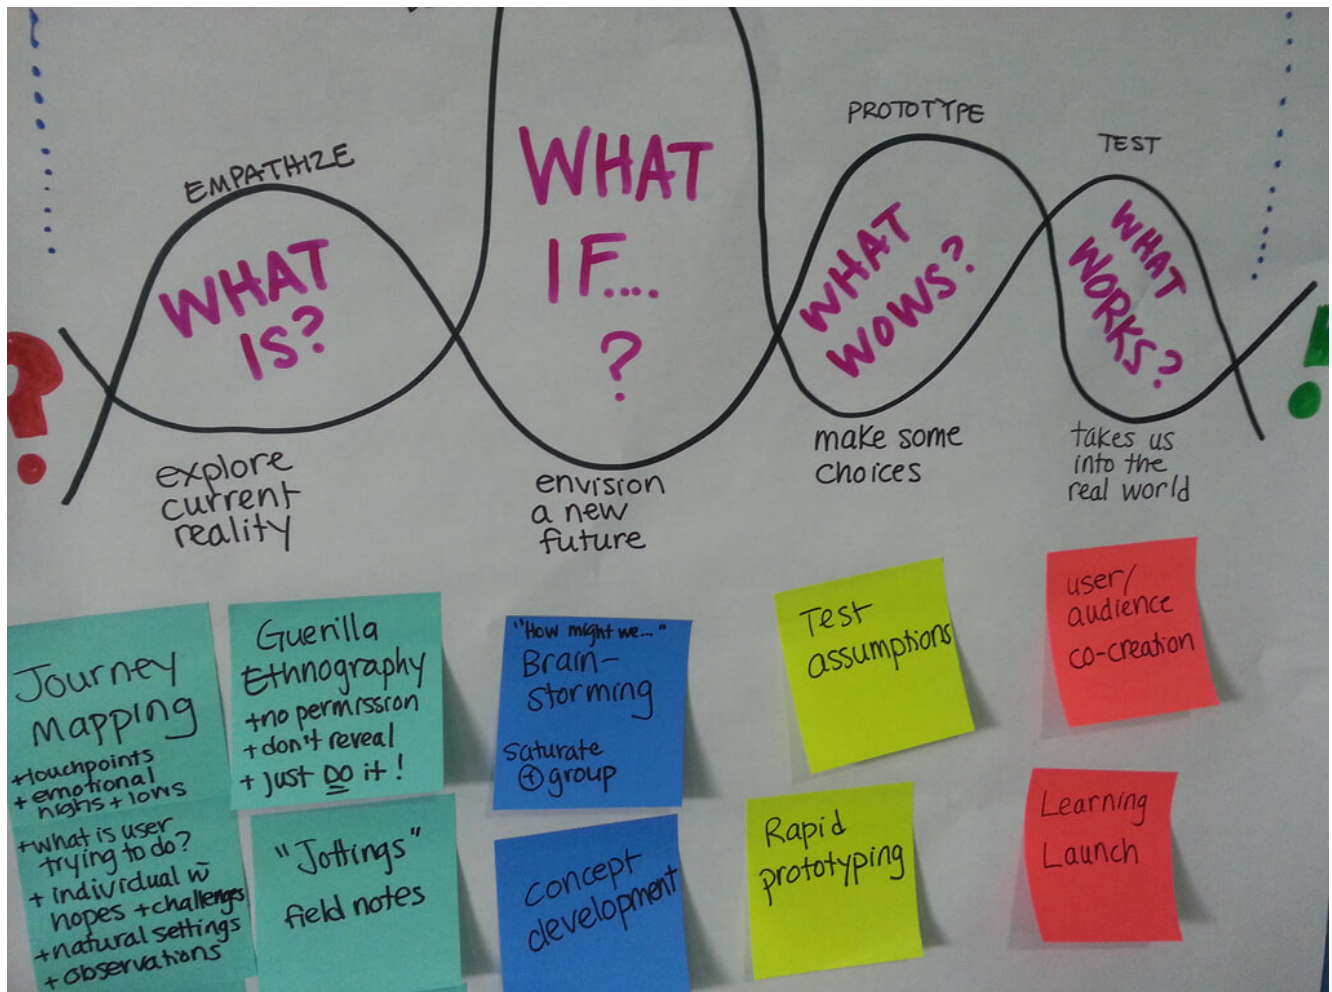 EMPATHIZE
WHAT
IS?
explore
current
reality
WHAT
IF....
?
envision
a new
future
PROTOTYPE
WHAT
WOWS?
make some
choices
TEST
WHAT
WORKS?
takes us
into the
real world
?
!
Journey
Mapping
+touchpoints
+ emotional
highs + lows
+what is user
trying to do?
+ individual w̄
hopes + challenges
+natural settings
+ observations
Guerilla
Ethnography
+no permission
+ don't reveal
+ just DO it !
"Jottings"
field notes
"How might we..."
Brain-
storming
saturate
⊕ group
concept
development
Test
assumptions
Rapid
prototyping
user/
audience
co-creation
Learning
Launch